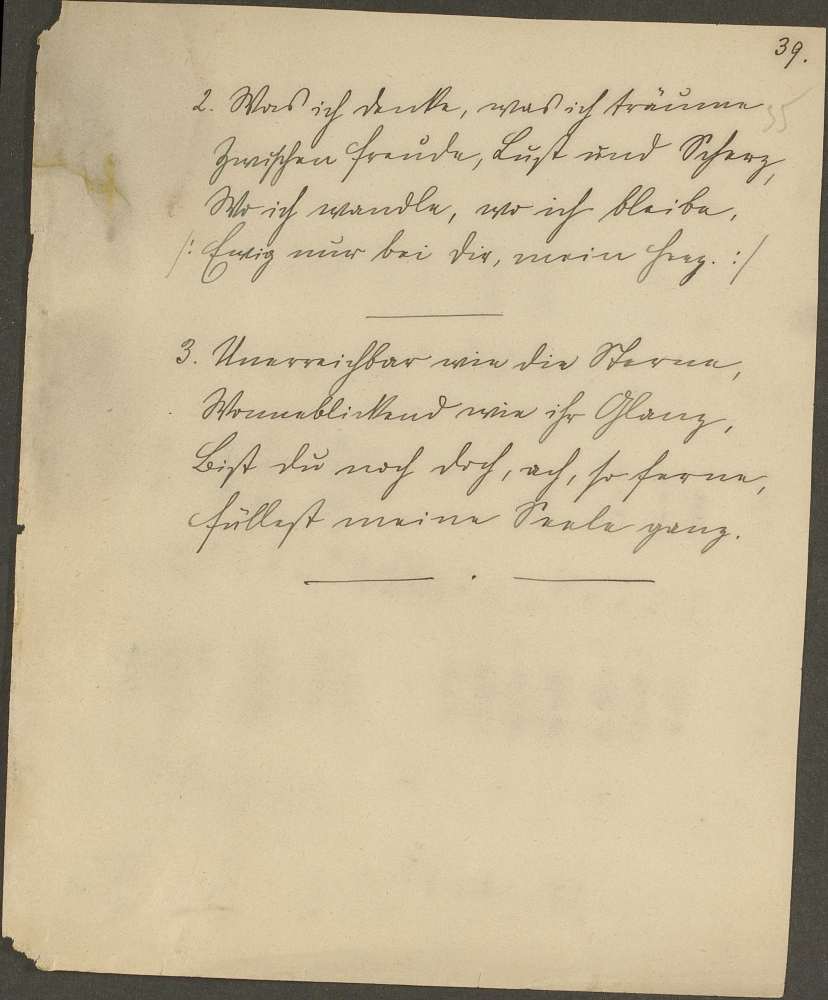 39.
35
2. Was ich denke, was ich träume
Zwischen Freude, Lust und Scherz,
Wo ich wandle, wo ich bleibe,
/: Ewig nur bei dir, mein Herz. :/
3. Unerreichbar wie die Sterne,
Wonneblickend wie ihr Glanz,
Bist du noch doch, ach, so ferne,
Füllest meine Seele ganz.